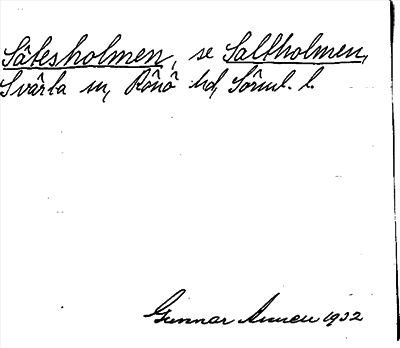 Sâtesholmen, se Saltholmen,
Svârta sn, Rônô hd, Sôrml. l.
Gunnar 1932